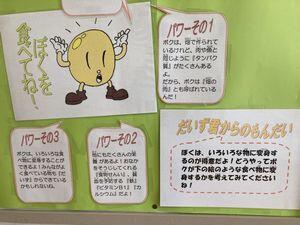 ぼくを
食べてね!
パワーその1
ボクは、畑で作られて
いるけれど、肉や卵と
同じように『タンパク
質』がたくさんある
よ。
だから、ボクは『畑の
肉』とも呼ばれている
んだ!
パワーその2
他にもたくさんの栄
養があるよ!おなか
をそうじしてくれる
『食物せんい』、貧
血を予防する『鉄』
『ビタミンB1』『カ
ルシウム』だよ!
パワーその3
ボクは、いろいろな食
べ物に変身することが
できるよ!みんながよ
く食べている物も『だ
いず』からできている
かもしれないね。
だいず君からのもんだい
ぼくは、いろいろな物に変身す
るのが得意だよ!どうやってボ
クが下の絵のような食べ物に変
身するかを考えてみてください
ね!